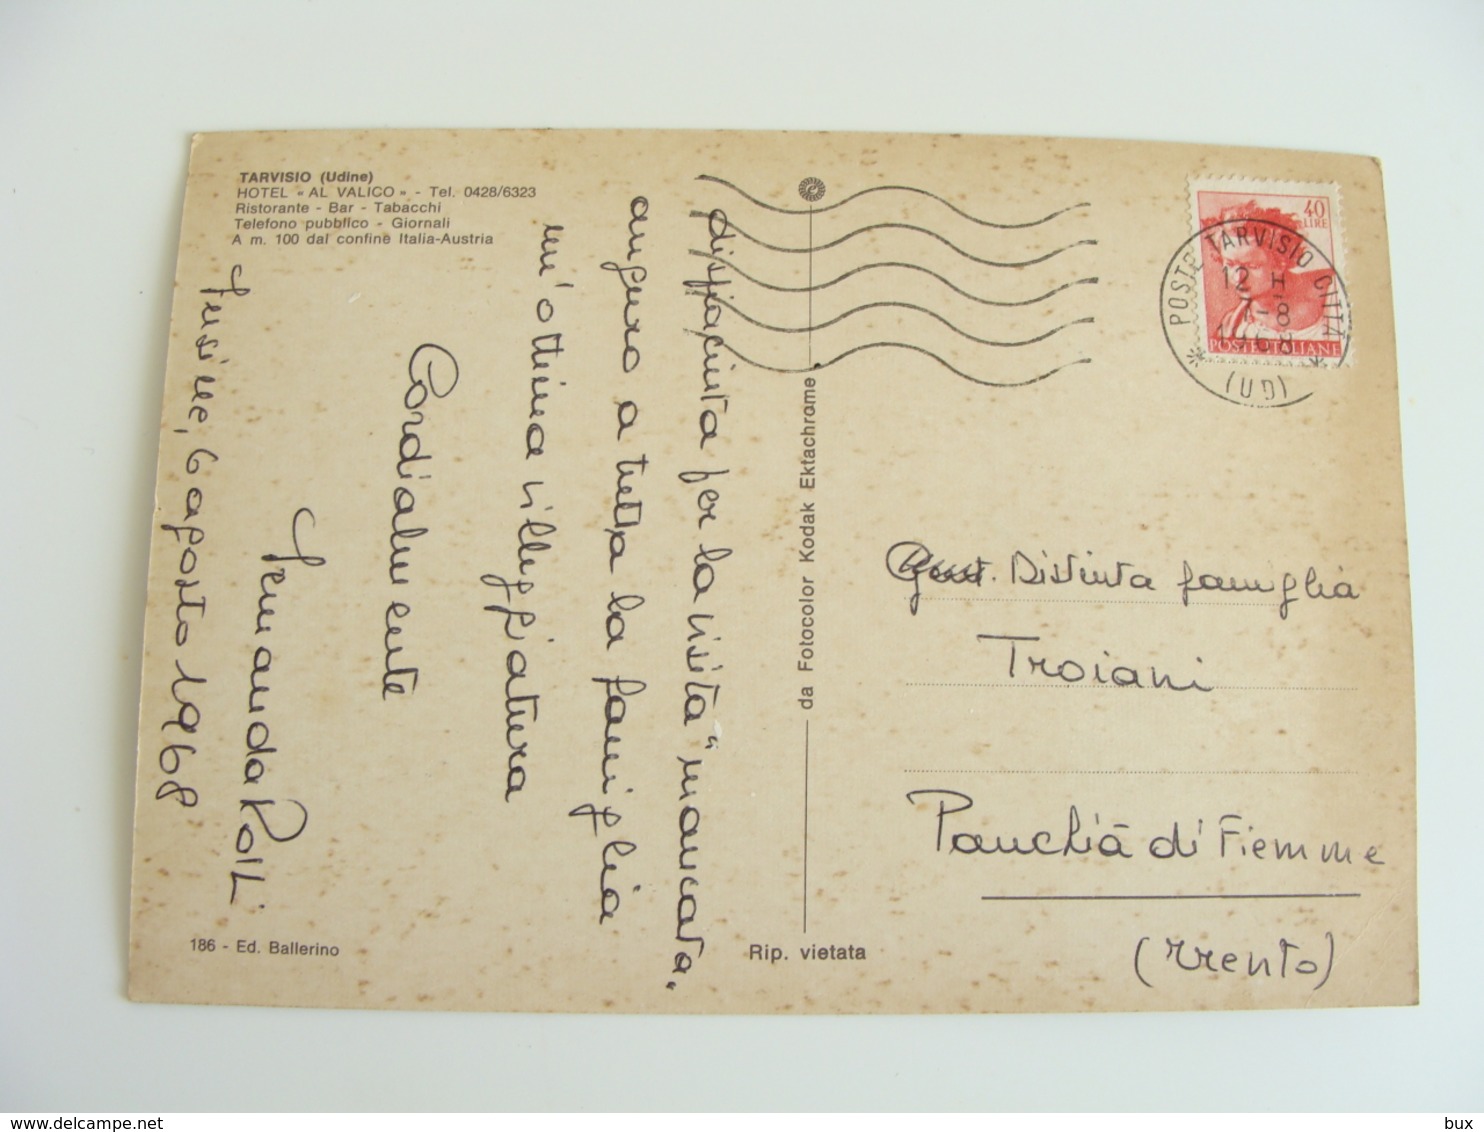 TARVISIO (Udine)
HOTEL « AL VALICO » - Tel. 0428/6323
Ristorante - Bar - Tabacchi
Telefono pubblico - Giornali
A m. 100 dal confine Italia-Austria
dispiaciuta per la visita "mancata"
auguro a tutta la famiglia
un'ottima villeggiatura
Cordialmente
Fernanda Polli
6 agosto 1968
186 - Ed. Ballerino
da Fotocolor Kodak Ektachrome
Rip. vietata
40
LIRE
POSTE ITALIANE
POSTE TARVISIO CITTA
12 H
7-8
1968
(UD)
Distinta famiglia
Troiani
Panchià di Fiemme
(Trento)
delcampe.net
bux